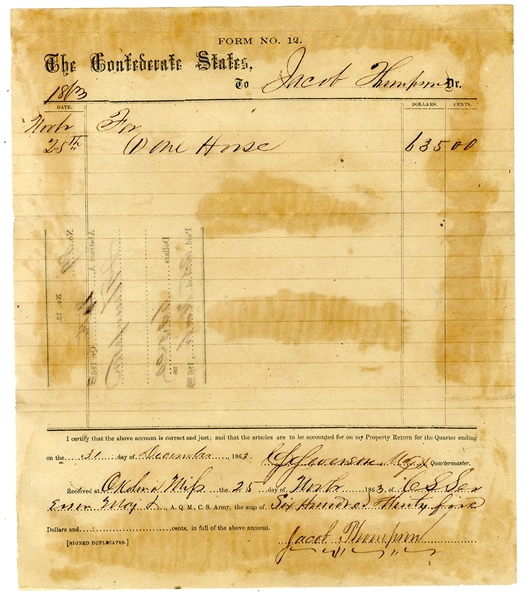 FORM NO. 12.
The Confederate States,
To Jacob Thompson Dr.
1863
DATE. DOLLARS. CENTS.
Novbr For
25th One Horse 635 00
I certify that the above account is correct and just; and that the articles are to be accounted for on my Property Return for the Quarter ending
on the 31 day of December, 1863. Quartermaster.
Received at Miss the 25 day of Novbr 1863, of
A. Q. M., C. S. Army, the sum of Six Hundred Thirty five
Dollars and cents, in full of the above account.
[SIGNED DUPLICATES.] Jacob Thompson